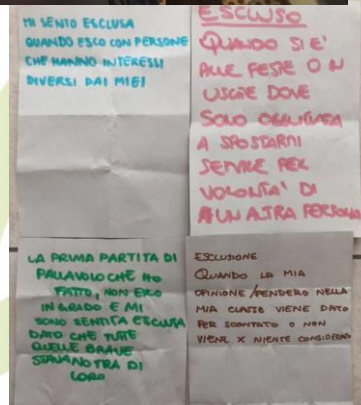 MI SENTO ESCLUSA
QUANDO ESCO CON PERSONE
CHE HANNO INTERESSI
DIVERSI DAI MIEI
ESCLUSO
QUANDO SI E'
ALLE FESTE O IN
USCITE DOVE
SONO OBBLIGATA
A SPOSTARMI
SEMPRE PER
VOLONTA' DI
UN ALTRA PERSONA
LA PRIMA PARTITA DI
PALLAVOLO CHE HO
FATTO, NON ERO
IN GRADO E MI
SONO SENTITA ESCLUSA
DATO CHE TUTTE
QUELLE BRAVE
STAVANO TRA DI
LORO
ESCLUSIONE
QUANDO LA MIA
OPINIONE/PENSIERO NELLA
MIA CLASSE VIENE DATO
PER SCONTATO O NON
VIENE X NIENTE CONSIDERATO